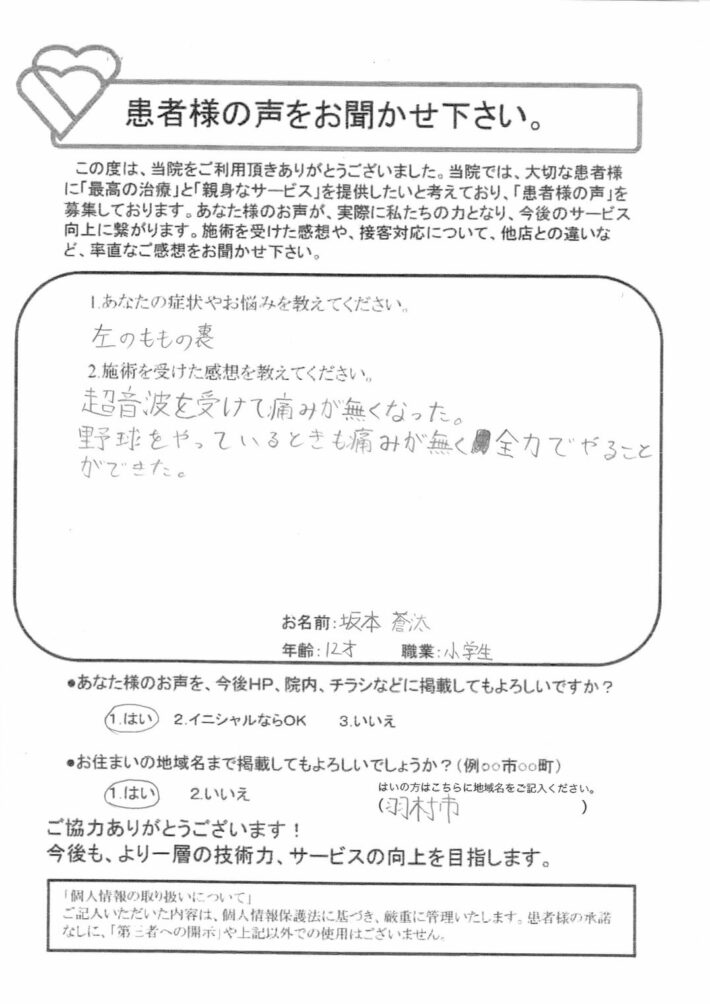 患者様の声をお聞かせ下さい。
この度は、当院をご利用頂きありがとうございました。当院では、大切な患者様
に「最高の治療」と「親身なサービス」を提供したいと考えており、「患者様の声」を
募集しております。あなた様のお声が、実際に私たちの力となり、今後のサービス
向上に繋がります。施術を受けた感想や、接客対応について、他店との違いな
ど、率直なご感想をお聞かせ下さい。
1.あなたの症状やお悩みを教えてください。
左のももの裏
2.施術を受けた感想を教えてください。
超音波を受けて痛みが無くなった。
野球をやっているときも痛みが無く全力でやること
ができた。
お名前:坂本 蒼汰
年齢:12才 職業:小学生
●あなた様のお声を、今後HP、院内、チラシなどに掲載してもよろしいですか？
1.はい 2.イニシャルならOK 3.いいえ
●お住まいの地域名まで掲載してもよろしいでしょうか？(例○○市○○町)
はいの方はこちらに地域名をご記入ください。
1.はい 2.いいえ (羽村市 )
ご協力ありがとうございます！
今後も、より一層の技術力、サービスの向上を目指します。
「個人情報の取り扱いについて」
ご記入いただいた内容は、個人情報保護法に基づき、厳重に管理いたします。患者様の承諾
なしに、「第三者への開示」や上記以外での使用はございません。